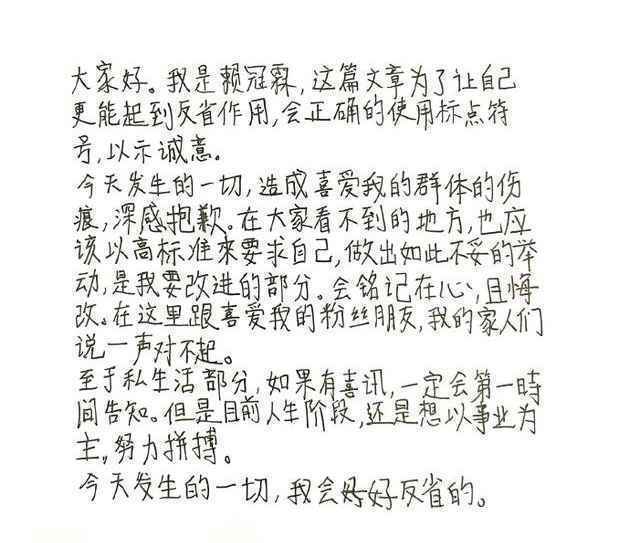 大家好。我是赖冠霖，这篇文章为了让自己
更能起到反省作用，会正确的使用标点符
号，以示诚意。
今天发生的一切，造成喜爱我的群体的伤
痕，深感抱歉。在大家看不到的地方，也应
该以高标准來要求自己，做出如此不妥的举
动，是我要改进的部分。会铭记在心，且悔
改。在这里跟喜爱我的粉丝朋友，我的家人们
说一声对不起。
至于私生活部分，如果有喜讯，一定会第一時
间告知。但是目前人生阶段，还是想以事业为
主，努力拼搏。
今天发生的一切，我会好好反省的。